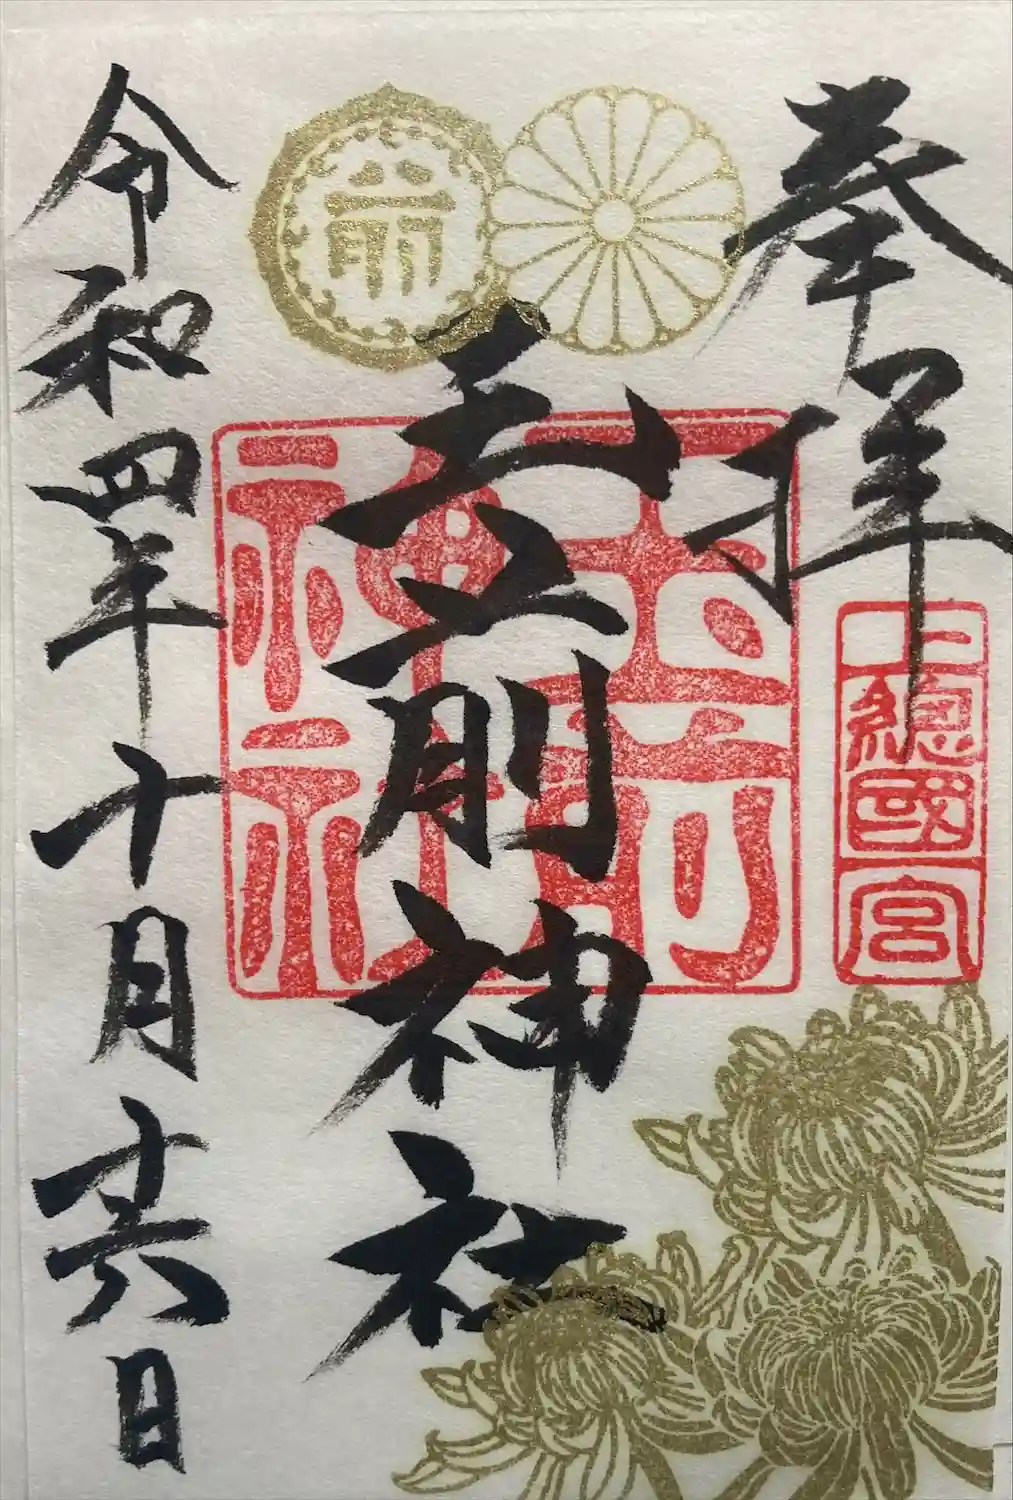 奉拝
上總國一宮
玉前神社
玉前神社
令和四年十月十六日